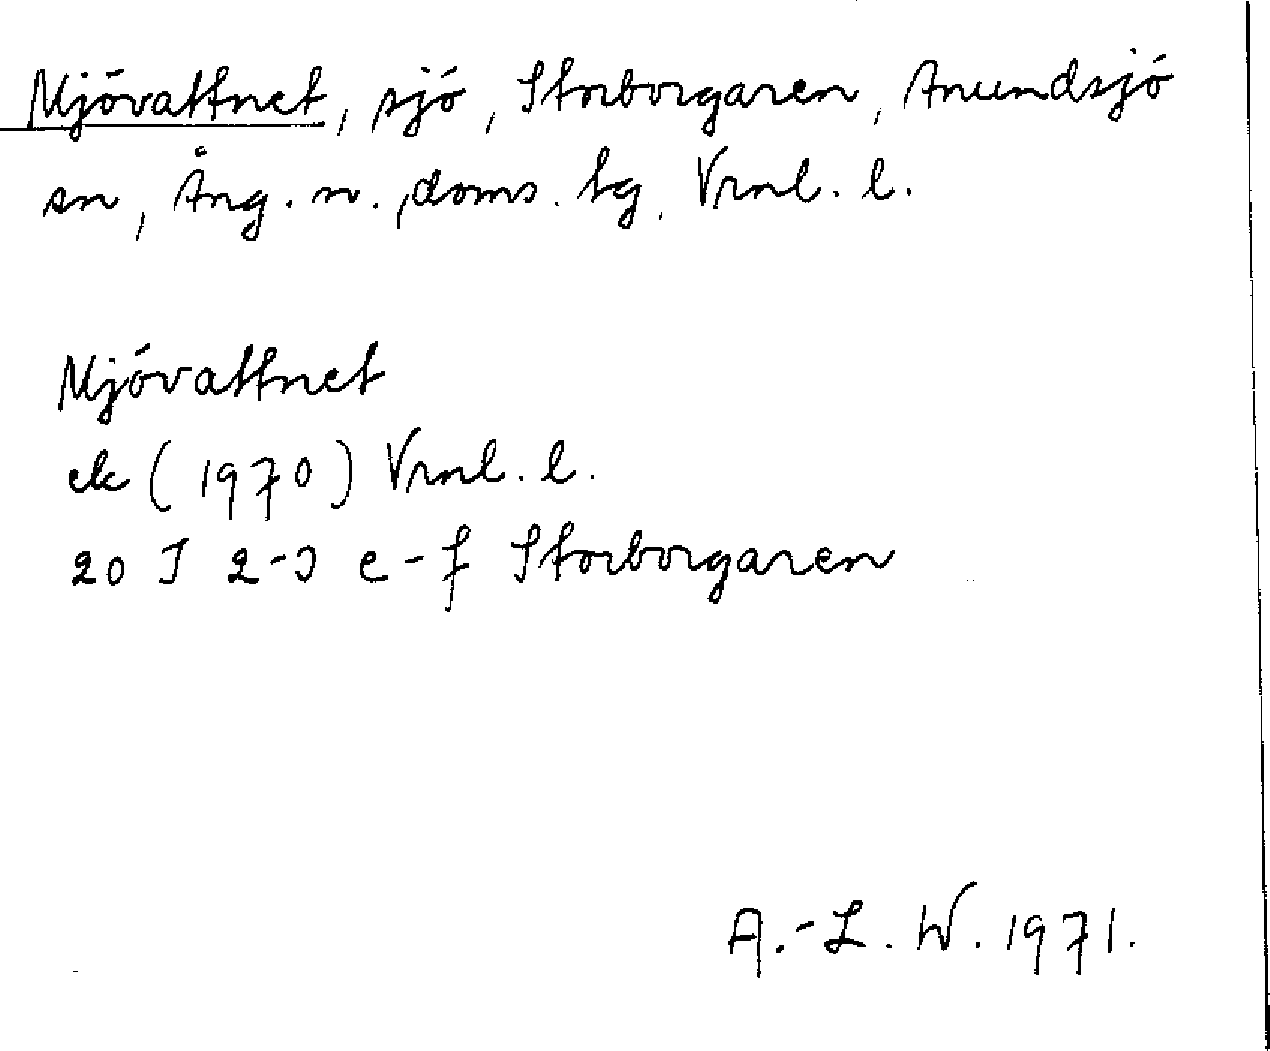 Mjövattnet, sjö, Storborgaren, Anundsjö
sn, Ång. n., doms. tg. Vrnl. l.
Mjövattnet
ek (1970) Vrnl. l.
20 I 2-3 e-f Storborgaren
A.-L. W. 1971.